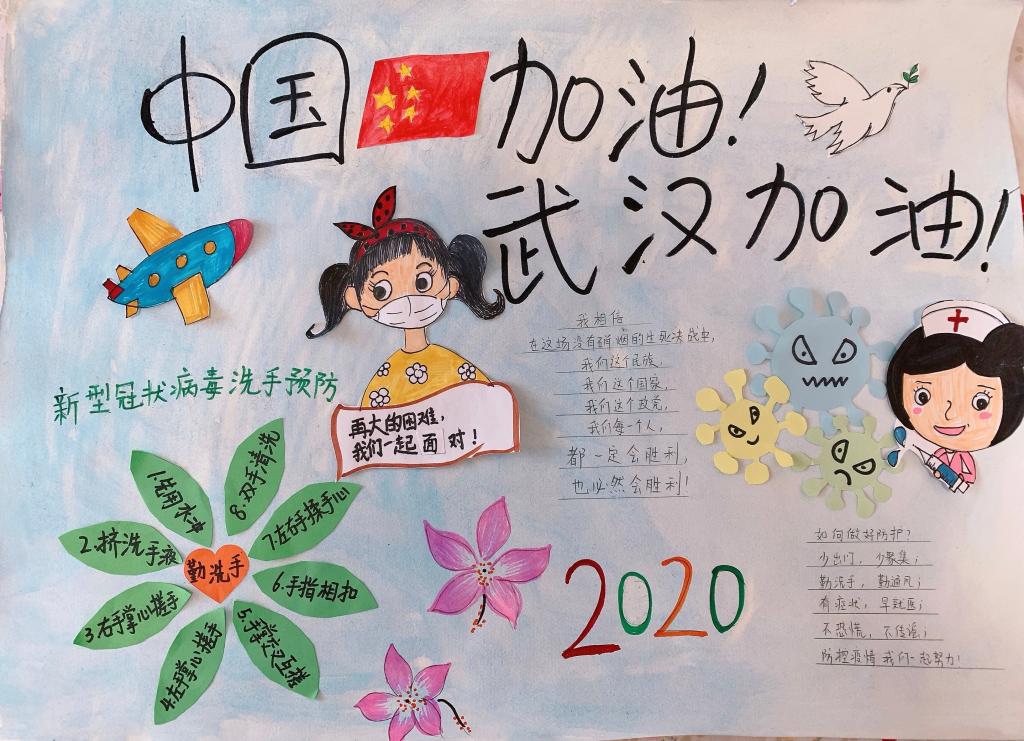 中国加油!
武汉加油!
新型冠状病毒洗手预防
再大的困难,
我们一起面对!
我相信
在这场没有硝烟的生死决战里,
我们这个民族,
我们这个国家,
我们这个政党,
我们每一个人,
都一定会胜利,
也必然会胜利!
勤洗手
1.先用水冲
2.挤洗手液
3.右手掌心搓手
4.左手掌心搓手
5.手掌交叉互搓
6.手指相扣
7.左右手揉手心
8.双手清洗
2020
如何做好防护?
少出门,少聚集;
勤洗手,勤通风;
有症状,早就医;
不恐慌,不传谣;
防控疫情 我们一起努力!